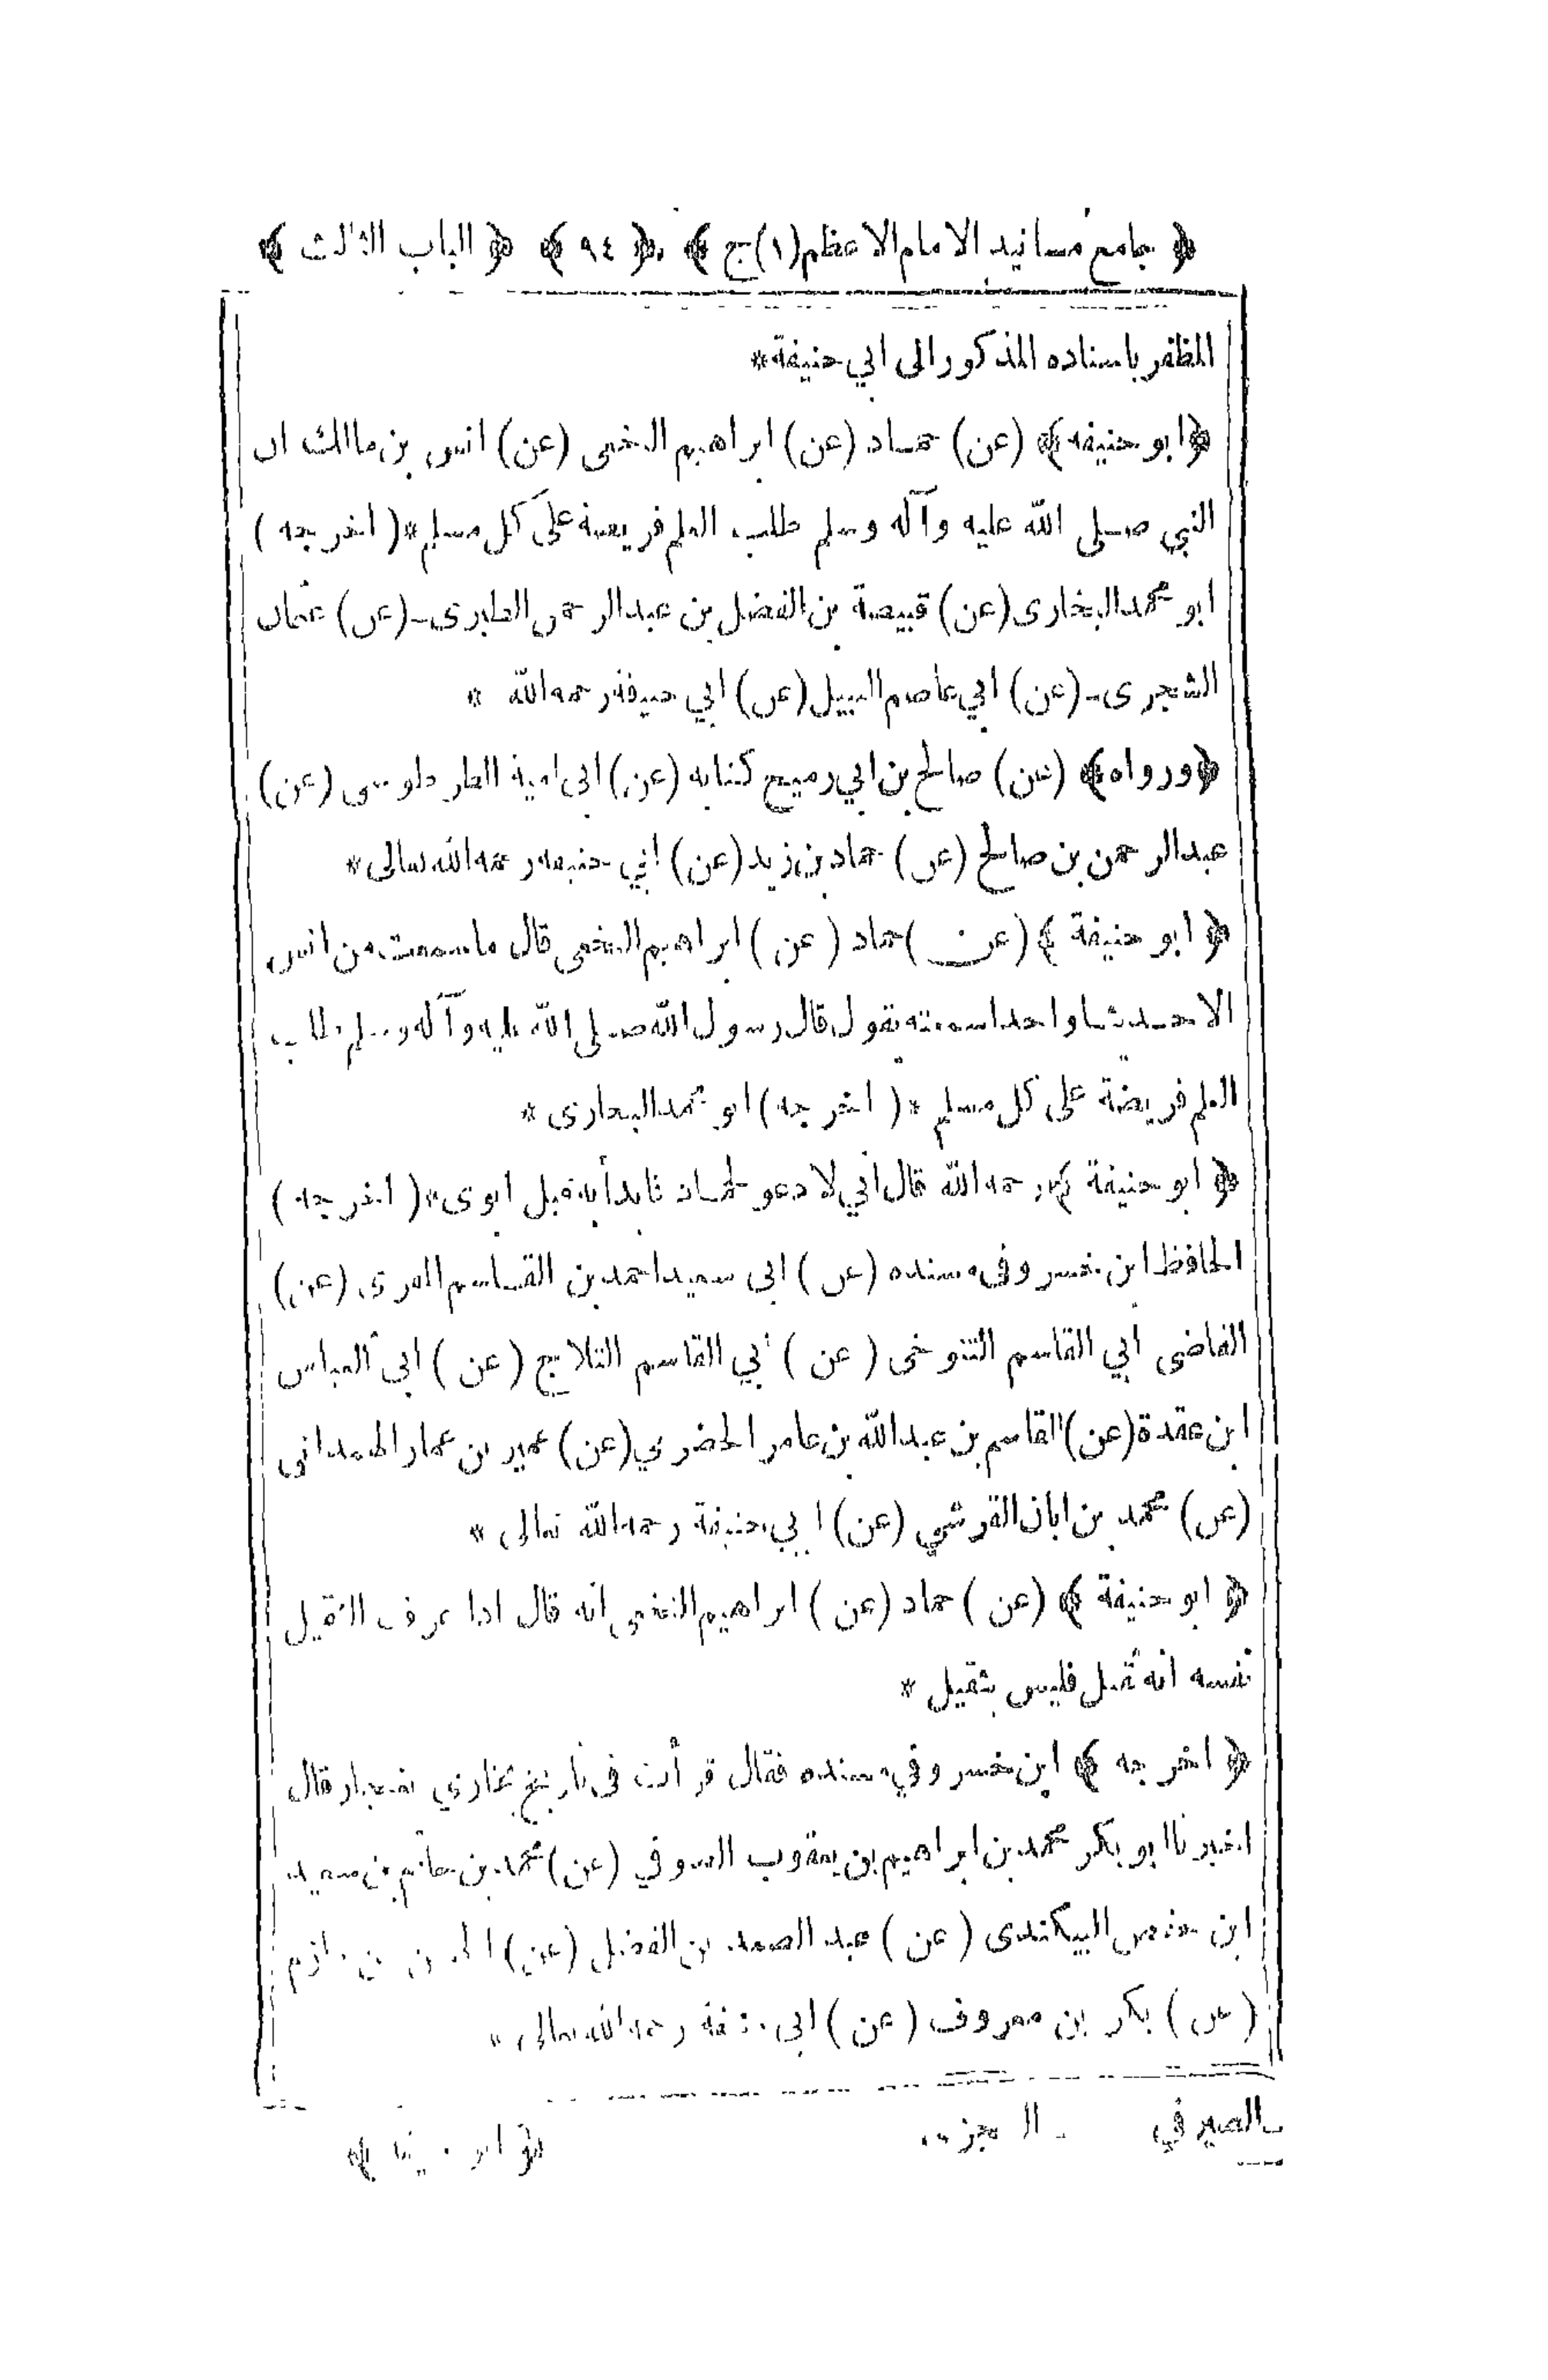 ﴿ جامع مسانيد الامام الاعظم(١)ج ﴾ ﴿ ٩٤ ﴾ ﴿ الباب الثالث ﴾
المظفر باسناده المذكور الى ابي حنيفة *
﴿ ابو حنيفة ﴾ (عن) حماد (عن) ابراهيم النخعى (عن) انس بن مالك ان
النبي صلى الله عليه وآله وسلم طلب العلم فريضة على كل مسلم * ( اخرجه )
ابو محمد البخارى (عن) قبيصة بن الفضل بن عبد الرحمن الطبرى - (عن) عثمان
الشجرى - (عن) ابي عاصم النبيل (عن) ابي حنيفة رحمه الله *
﴿ ورواه ﴾ (عن) صالح بن ابي رميح كتابه (عن) ابى امية الطرطوسى (عن)
عبد الرحمن بن صالح (عن) حماد بن زيد (عن) ابي حنيفة رحمه الله تعالى *
﴿ ابو حنيفة ﴾ (عن) حماد (عن) ابراهيم النخعى قال ما سمعت من انس
الا حديثا واحدا سمعته يقول قال رسول الله صلى الله عليه وآله وسلم طلب
العلم فريضة على كل مسلم * ( اخرجه ) ابو محمد البخارى *
﴿ ابو حنيفة ﴾ رحمه الله قال انى لا دعو لحماد فابدأ به قبل ابوى * ( اخرجه )
الحافظ ابن خسرو فى مسنده (عن) ابى سعيد احمد بن القاسم (عن)
القاضى ابي القاسم التنوخى (عن) ابي القاسم الثلاج (عن) ابى العباس
ابن عقدة (عن) القاسم بن عبد الله بن عامر الحضرمي (عن) عمير بن عمار الهمدانى
(عن) محمد بن ابان القرشي (عن) ابي حنيفة رحمه الله تعالى *
﴿ ابو حنيفة ﴾ (عن) حماد (عن) ابراهيم النخعى انه قال اذا عرف الثقيل
نفسه انه ثقيل فليس بثقيل *
﴿ اخرجه ﴾ ابن خسرو في مسنده فقال قرأت فى تاريخ بخارى قال
اخبرنا ابو بكر محمد بن ابراهيم بن يعقوب (عن) محمد بن حاتم بن سعيد
ابن البيكندى (عن) عبد الصمد بن الفضل (عن) بن
(عن) بكر بن معروف (عن) ابى حنيفة رحمه الله تعالى *
الصيرفي
﴿ ابو حنيفة ﴾